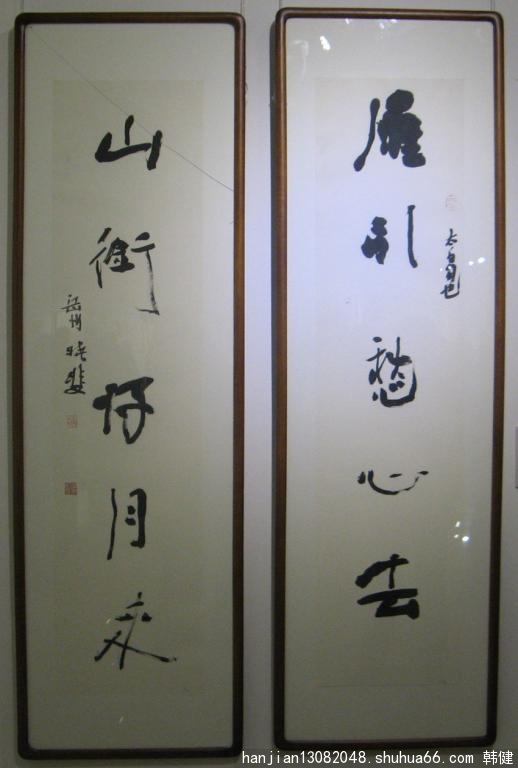 雁引愁心去
太白句也
山衔好月来
hanjian13082048.shuhua66.com 韩健